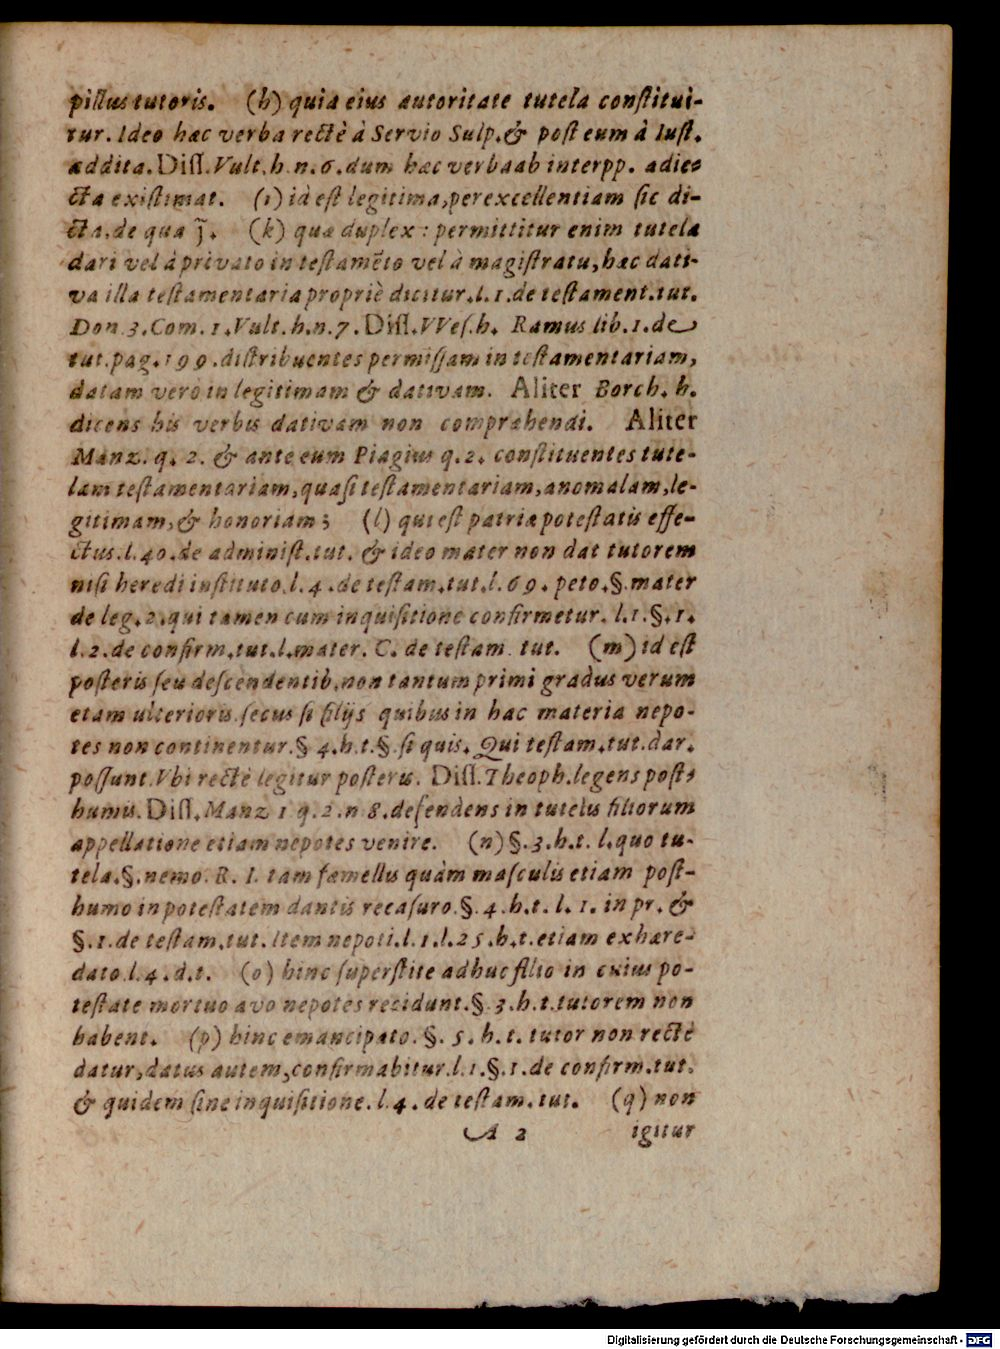 pillus tutoris. (h) quia eius autoritate tutela constitui-
tur. Ideo hæc verba rectè à Servio Sulp. & post eum à Iust.
addita. Diss. Vult. h. n. 6. dum hæc verba ab interpp. adie-
cta existimat. (i) id est legitima, per excellentiam sic di-
cta, de qua j̃. (k) quæ duplex: permittitur enim tutela
dari vel à privato in testamẽto vel à magistratu, hæc dati-
va illa testamentaria propriè dicitur. l. 1. de testament. tut.
Don. 3. Com. 1. Vult. h. n. 7. Diss. VVes. h. Ramus lib. 1. de
tut. pag. 199. distribuentes permissam in testamentariam,
datam verò in legitimam & dativam. Aliter Borch. h.
dicens his verbis dativam non comprehendi. Aliter
Manz. q. 2. & ante eum Piagius q. 2. constituentes tute-
lam testamentariam, quasi testamentariam, anomalam, le-
gitimam, & honoriam; (l) qui est patriæ potestatis effe-
ctus. l. 40. de administ. tut. & ideo mater non dat tutorem
nisi heredi instituto. l. 4. de testam. tut. l. 69. peto. §. mater
de leg. 2. qui tamen cum inquisitione confirmetur. l. 1. §. 1.
l. 2. de confirm. tut. l. mater. C. de testam. tut. (m) id est
posteris seu descendentib. non tantum primi gradus verum
etam ulterioris. secus si filijs quibus in hac materia nepo-
tes non continentur. § 4. h. t. §. si quis. Qui testam. tut. dar.
possunt. Vbi rectè legitur posteris. Diss. Theoph. legens post-
humis. Diss. Manz 1 q. 2. n 8. defendens in tutelis filiorum
appellatione etiam nepotes venire. (n) §. 3. h. t. l. quo tu-
tela. §. nemo. R. I. tam fæmellis quàm masculis etiam post-
humo in potestatem dantis recasuro. §. 4. h. t. l. 1. in pr. &
§. 1. de testam. tut. Item nepoti. l. 1. l. 25. h. t. etiam exhære-
dato. l. 4. d. t. (o) hinc superstite adhuc filio in cuius po-
testate mortuo avo nepotes recidunt. §. 3. h. t. tutorem non
habent. (p) hinc emancipato. §. 5. h. t. tutor non rectè
datur, datus autem, confirmabitur. l. 1. §. 1. de confirm. tut.
& quidem sine inquisitione. l. 4. de testam. tut. (q) non
A 2 igitur
Digitalisierung gefördert durch die Deutsche Forschungsgemeinschaft - DFG